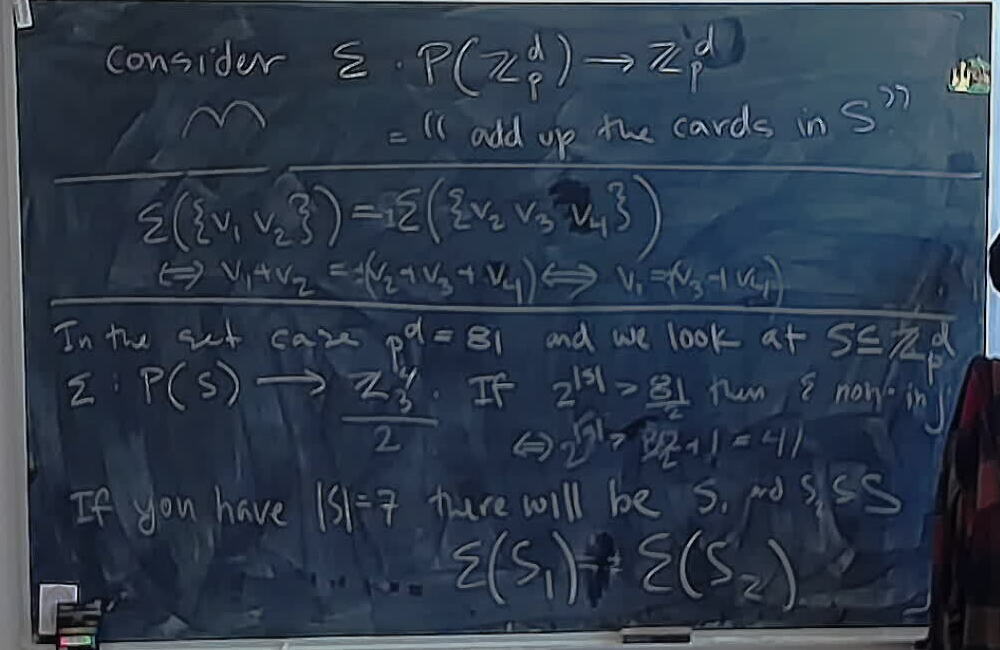 Consider Σ : P(ℤ_p^d) → ℤ_p^d
= "add up the cards in S"
Σ({v₁ v₂}) = Σ({v₂ v₃ v₄})
⟺ v₁+v₂ = +(v₂+v₃+v₄) ⟺ v₁ = (v₃+v₄)
In the set case p^d = 81 and we look at S ⊆ ℤ_p^d
Σ : P(S) → ℤ_3^4 / 2 . If 2^|S| > 81/2 then Σ non-inj
⟺ 2^|S| > +1 = 41
If you have |S|=7 there will be S₁ and S₂ ⊆ S
Σ(S₁) = Σ(S₂)